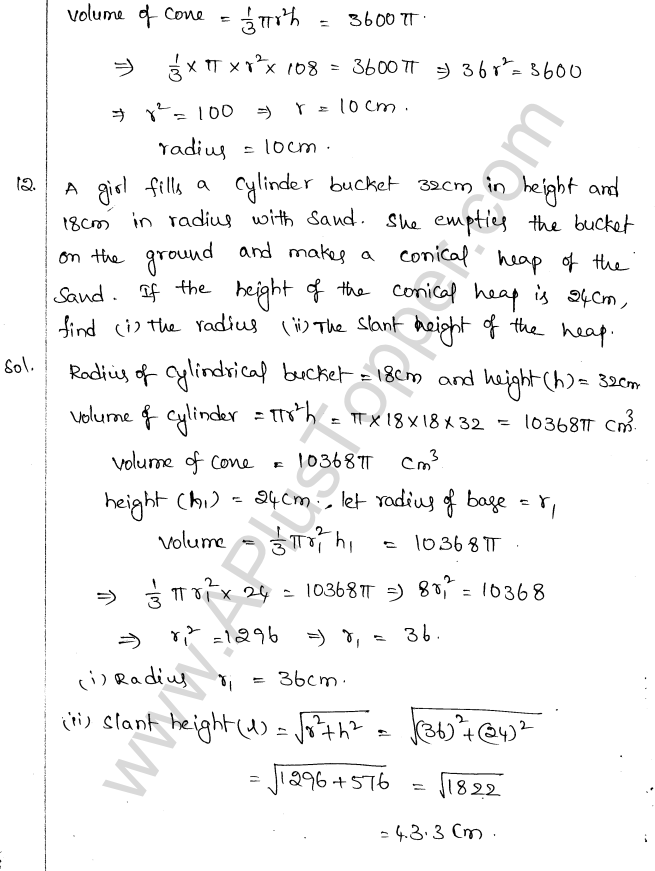 volume of cone = 1/3 πr²h = 3600π.
⇒ 1/3 × π × r² × 108 = 3600π ⇒ 36r² = 3600
⇒ r² = 100 ⇒ r = 10cm.
radius = 10cm.
12. A girl fills a cylinder bucket 32cm in height and
18cm in radius with sand. She empties the bucket
on the ground and makes a conical heap of the
sand. If the height of the conical heap is 24cm,
find (i) The radius (ii) The slant height of the heap.
Sol. Radius of cylindrical bucket = 18cm and height (h) = 32cm
volume of cylinder = πr²h = π×18×18×32 = 10368π cm³.
volume of cone = 10368π cm³
height (h₁) = 24cm., let radius of base = r₁
volume = 1/3 πr₁²h₁ = 10368π.
⇒ 1/3 πr₁² × 24 = 10368π ⇒ 8r₁² = 10368
⇒ r₁² = 1296 ⇒ r₁ = 36.
(i) Radius r₁ = 36cm.
(ii) Slant height (l) = √(r²+h²) = √((36)²+(24)²)
= √(1296+576) = √1822
= 43.3 cm.
www.APlusTopper.com